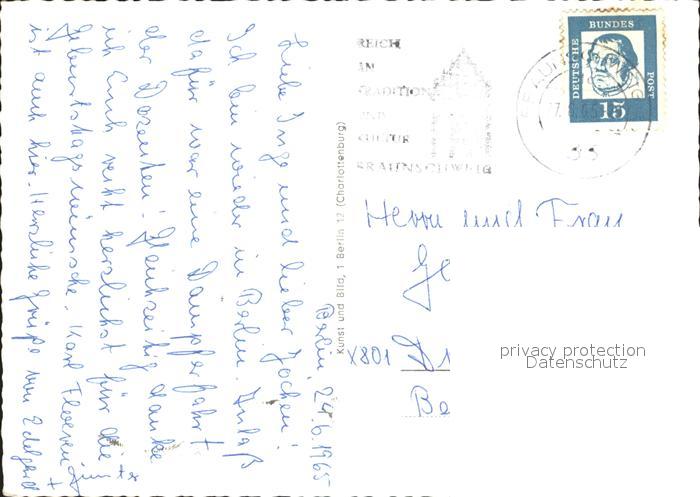 Berlin 24.6.1965
Liebe Inge und lieber Jochen!
Ich bin wieder in Berlin. Anlaß
dafür war eine Dampferfahrt
der Dozenten. Gleichzeitig danke
ich Euch recht herzlichst für die
Geburtstagswünsche. Karl
ist auch hier. Herzliche Grüße von Edelgard
Kunst und Bild, 1 Berlin 12 (Charlottenburg)
REICH
AN
TRADITION
UND
KULTUR
BRAUNSCHWEIG
DEUTSCHE
BUNDES
POST
15
Herrn und Frau
X801
privacy protection
Datenschutz